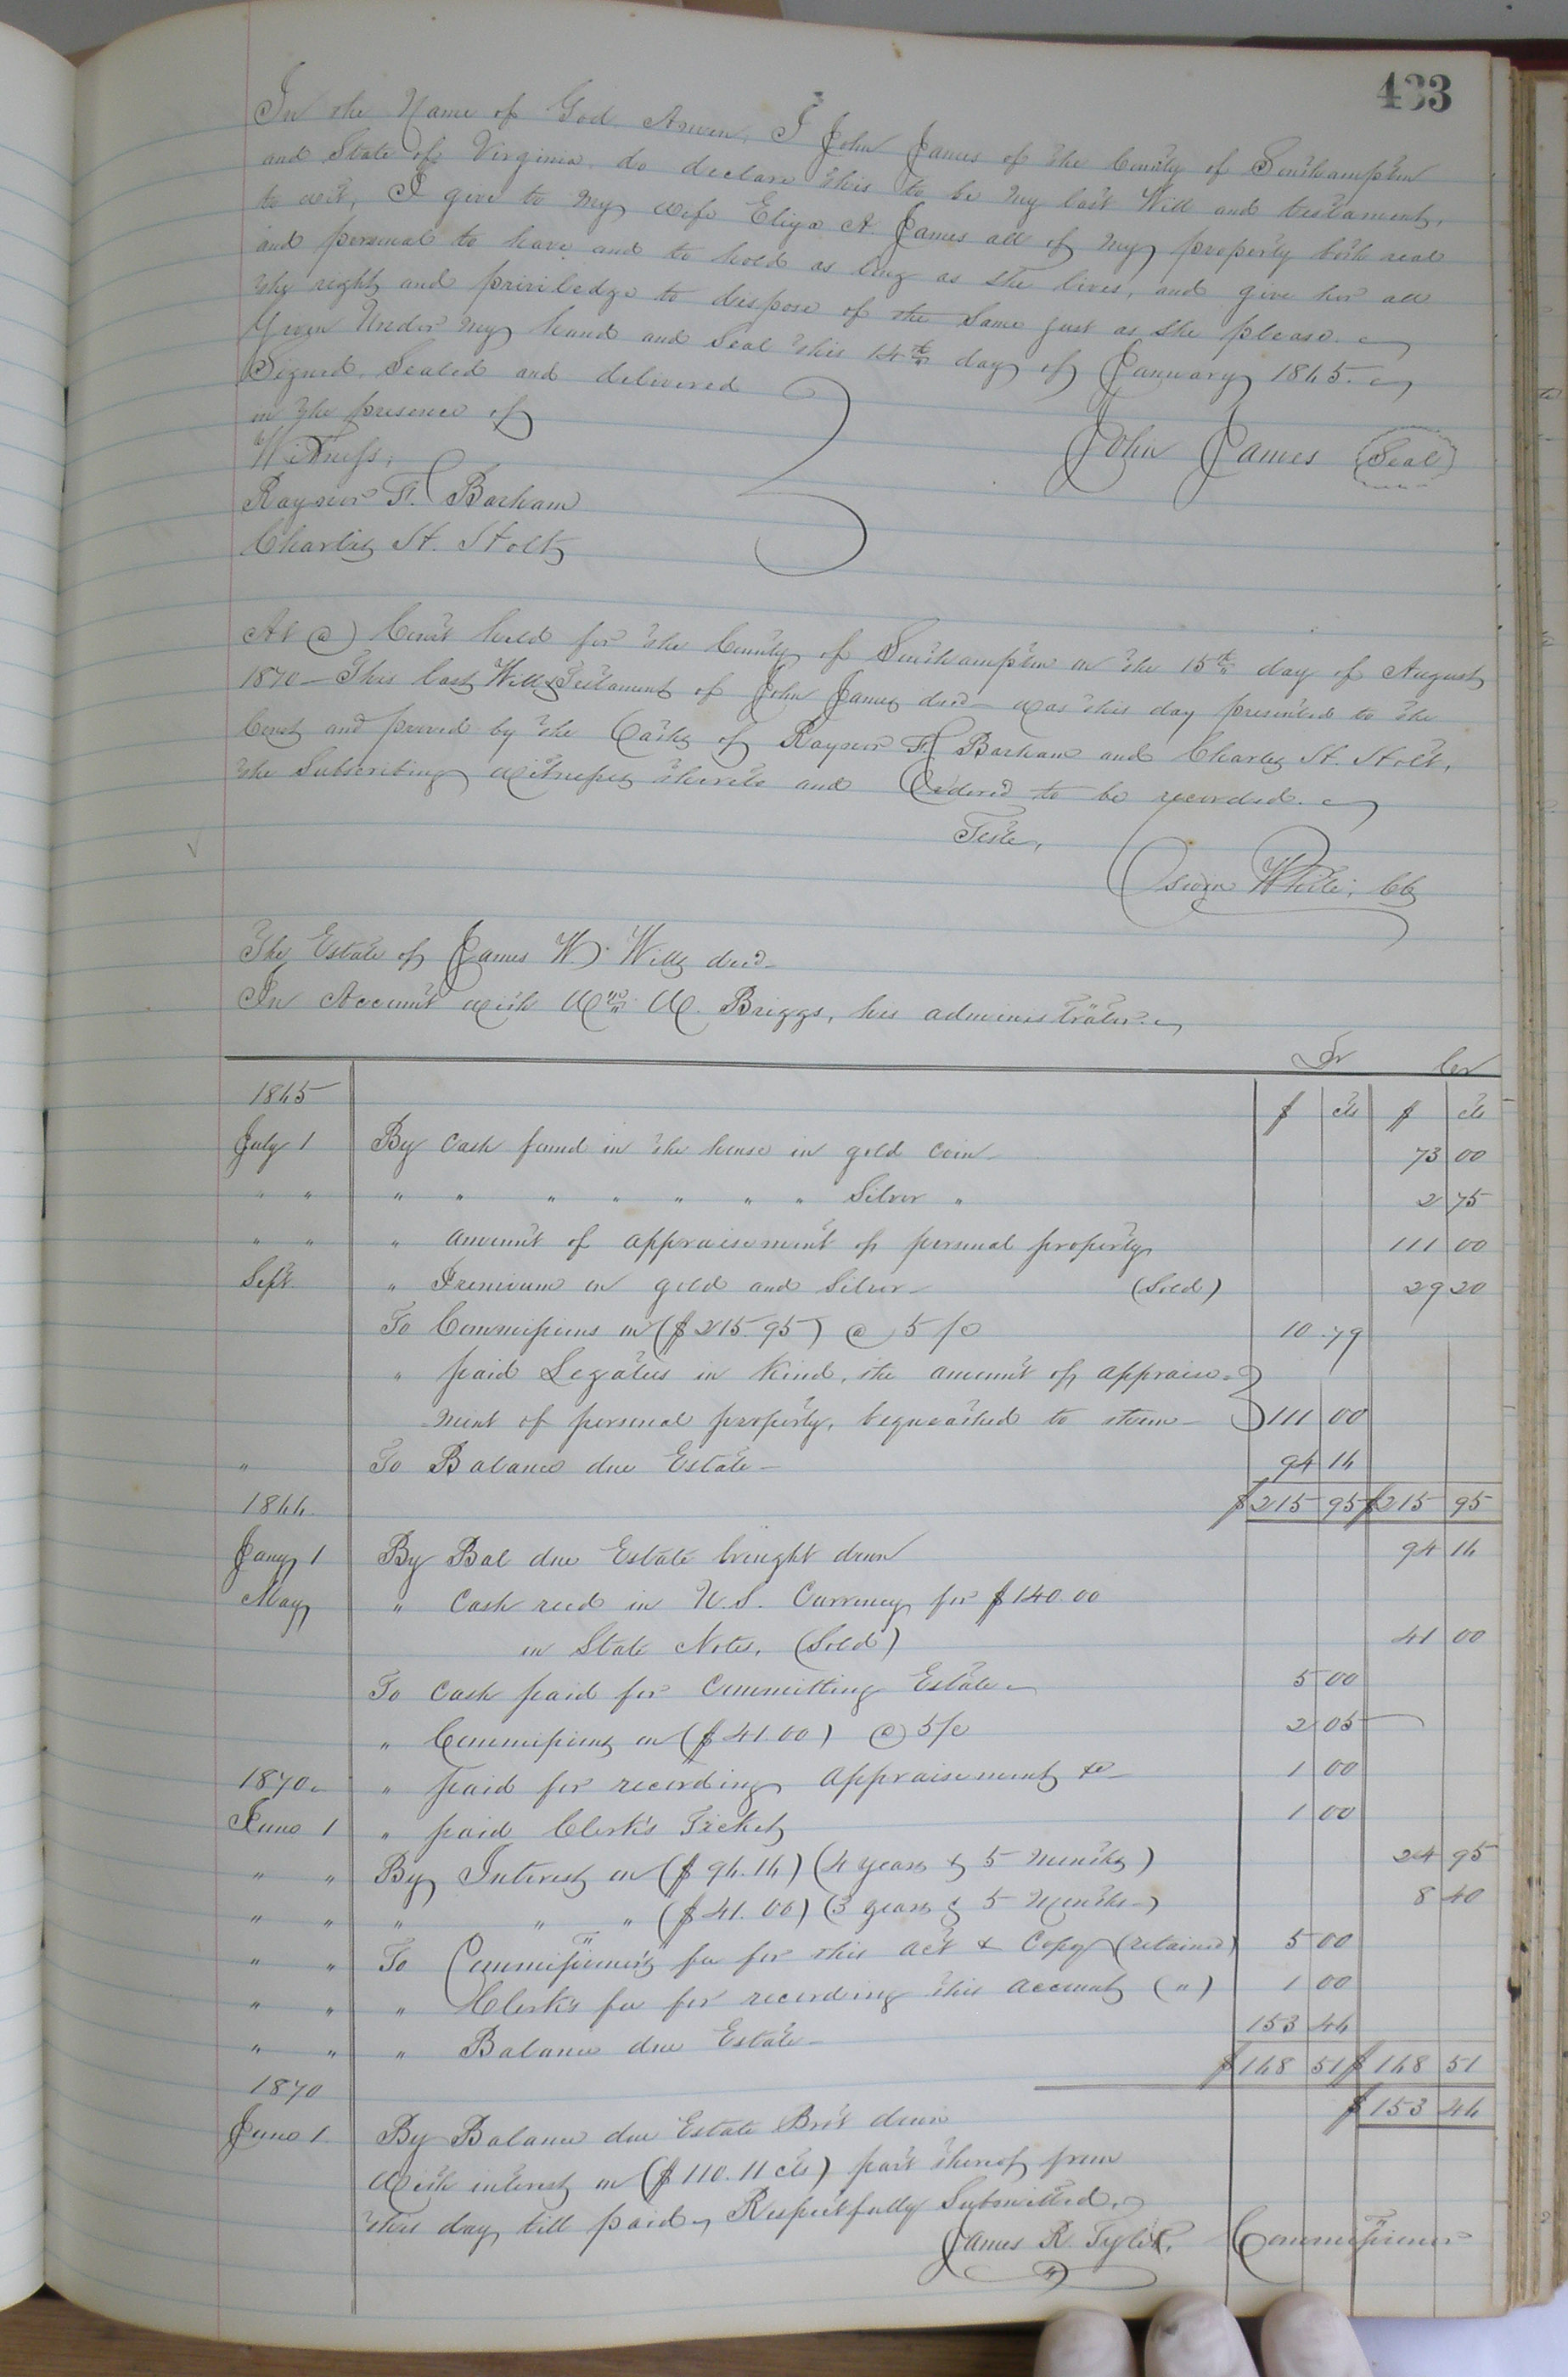 433
In the Name of God Amen, I John James of the County of Southampton
and State of Virginia do declare this to be my last Will and testament,
to wit, I give to my wife Eliza A. James all of my property both real
and personal to have and to hold as long as she lives, and give her all
the right and priviledge to dispose of the same just as she please.
Given Under my hand and Seal this 14th day of January 1865.
Signed, Sealed and delivered
in the presence of
John James (Seal)
Witness;
Rayser F. Barham
Charles H. Holt
At @ Court held for the County of Southampton on the 15th day of August
1870 — This last Will & Testament of John James decd — was this day presented to the
Court and proved by the Oaths of Rayser F. Barham and Charles H. Holt,
the Subscribing witnesses thereto and Ordered to be recorded.
Teste,
Oswin White, CC
The Estate of James W. Wills decd —
In Account with Wm W. Briggs, his administrator.
Dr Cr
1865 $ cts $ cts
July 1 By Cash found in the house in gold coin 73 00
" " " " " " " " " Silver " 2 75
" " " amount of appraisement of personal property 111 00
Sept. " Premium on gold and Silver (Sold) 29 20
To Commissions on ($215.95) @ 5 p/c 10.79
" paid Legatees in Kind, the amount of appraise-
ment of personal property, bequeathed to them 111 00
" To Balance due Estate 94 16
1866. $215 95 $215 95
Jany 1 By Bal due Estate brought down 94 16
May " Cash recd in U.S. Currency for $140.00
in State Notes, (Sold) 41 00
To Cash paid for Committing Estate 5 00
" Commissions on ($41.00) @ 5/c 2 05
1870. " paid for recording appraisement &c 1 00
June 1 " paid Clerk's Ticket 1 00
" " By Interest on ($94.16) (4 years & 5 months) 24 95
" " " " " ($41.00) (3 years & 5 Months) 8 40
" " To Commissioner's fee for this act & Copy (retained) 5 00
" " " Clerk's fee for recording this account (") 1 00
" " " Balance due Estate 153 46
1870 $168 51 $168 51
June 1. By Balance due Estate Bro't down $153 46
With interest on ($110.11 cts) part thereof from
this day till paid, Respectfully Submitted,
James R. Tyler, Commissioner